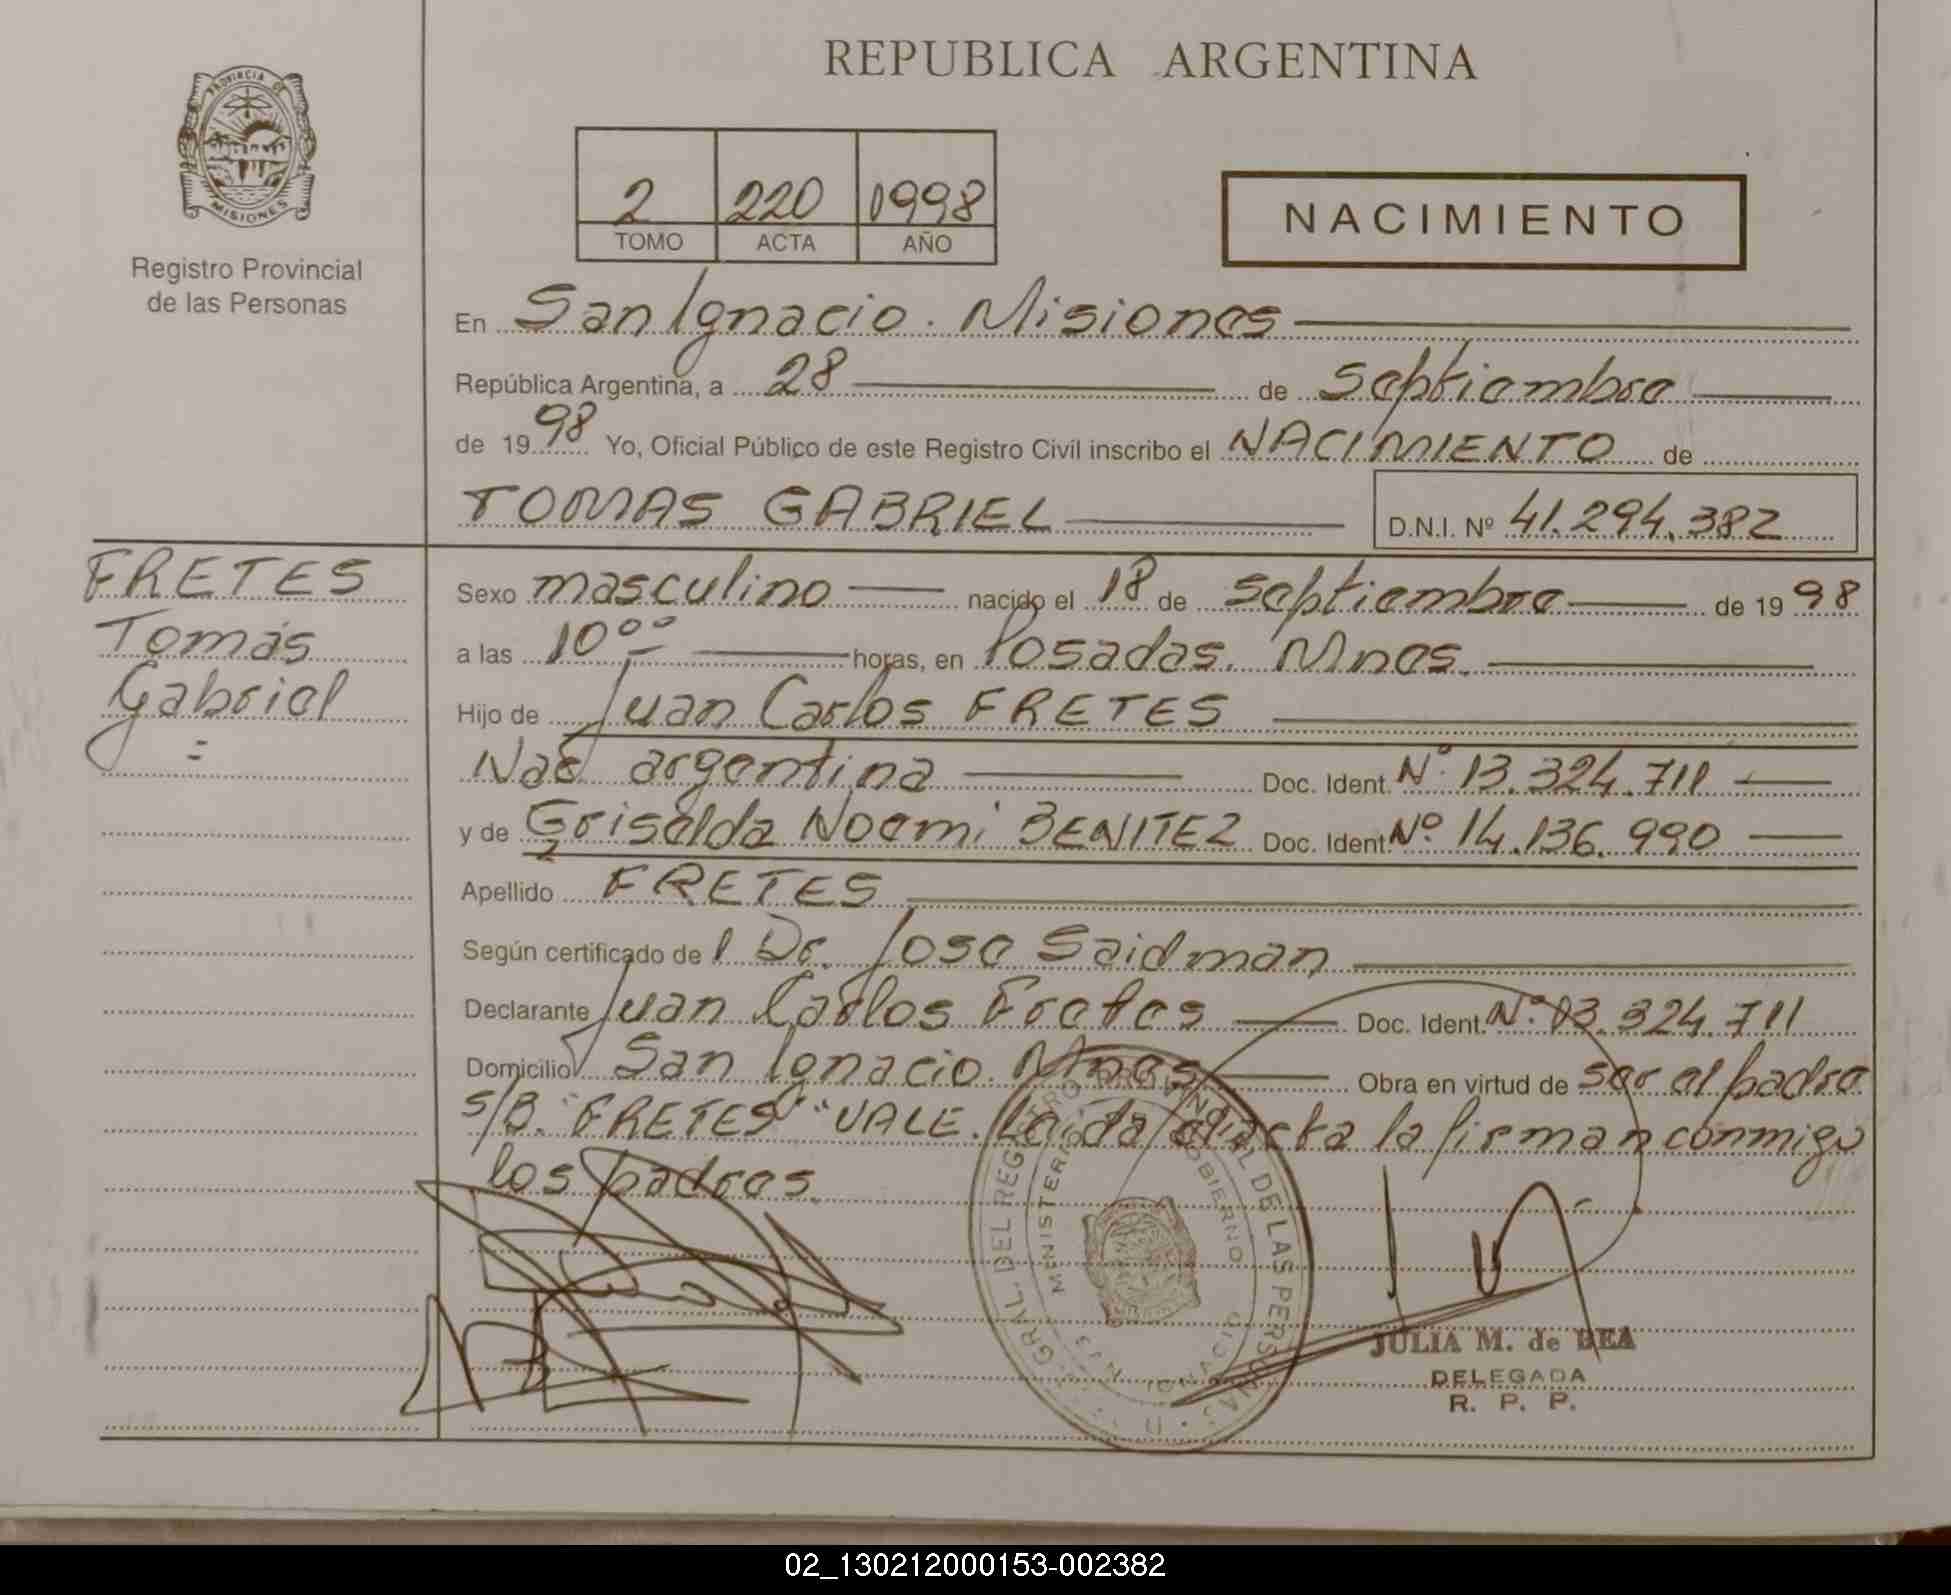 REPUBLICA ARGENTINA
PROVINCIA DE
MISIONES
Registro Provincial
de las Personas
2 220 1998
TOMO ACTA AÑO
NACIMIENTO
En San Ignacio. Misiones
República Argentina, a 28 de Septiembre
de 1998 Yo, Oficial Público de este Registro Civil inscribo el NACIMIENTO de
TOMAS GABRIEL D.N.I. Nº 41.294.382
FRETES
Tomás
Gabriel
Sexo masculino nacido el 18 de Septiembre de 1998
a las 10°° horas, en Posadas. Mnes.
Hijo de Juan Carlos FRETES
Nac argentina Doc. Ident. Nº 13.324.711
y de Griselda Noemi BENITEZ Doc. Ident. Nº 14.136.990
Apellido FRETES
Según certificado del Dr. Jose Saidman
Declarante Juan Carlos Fretes Doc. Ident. Nº 13.324.711
Domicilio San Ignacio. Mnes Obra en virtud de ser el padre
S/B. "FRETES" "VALE. Leida el acta la firman conmigo
los padres.
GRAL. DEL REGISTRO PROVINCIAL DE LAS PERSONAS
MINISTERIO GOBIERNO
IGNACIO
JULIA M. de BEA
DELEGADA
R. P. P.
02_130212000153-002382